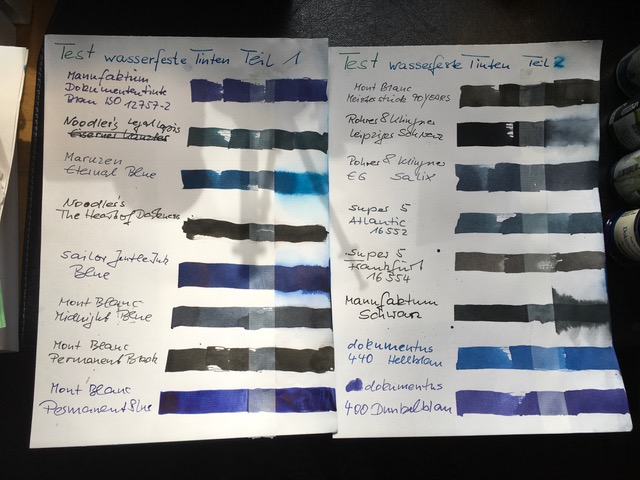 Test wasserfeste Tinten Teil 1
Manufaktum
Dokumententinte
Blau ISO 12757-2
Noodler's Legal Lapis
Maruzen
Eternal Blue
Noodler's
The Heart of Darkness
Sailor Jentle Ink
Blue
Mont Blanc
Midnight Blue
Mont Blanc
Permanent Black
Mont Blanc
Permanent Blue
Test wasserfeste Tinten Teil 2
Mont Blanc
Meisterstück 90 YEARS
Rohrer & Klingner
Leipziger Schwarz
Rohrer & Klingner
EG Salix
Super 5
Atlantic
16552
Super 5
Frankfurt
16554
Manufaktum
Schwarz
dokumentus
440 Hellblau
dokumentus
400 Dunkelblau